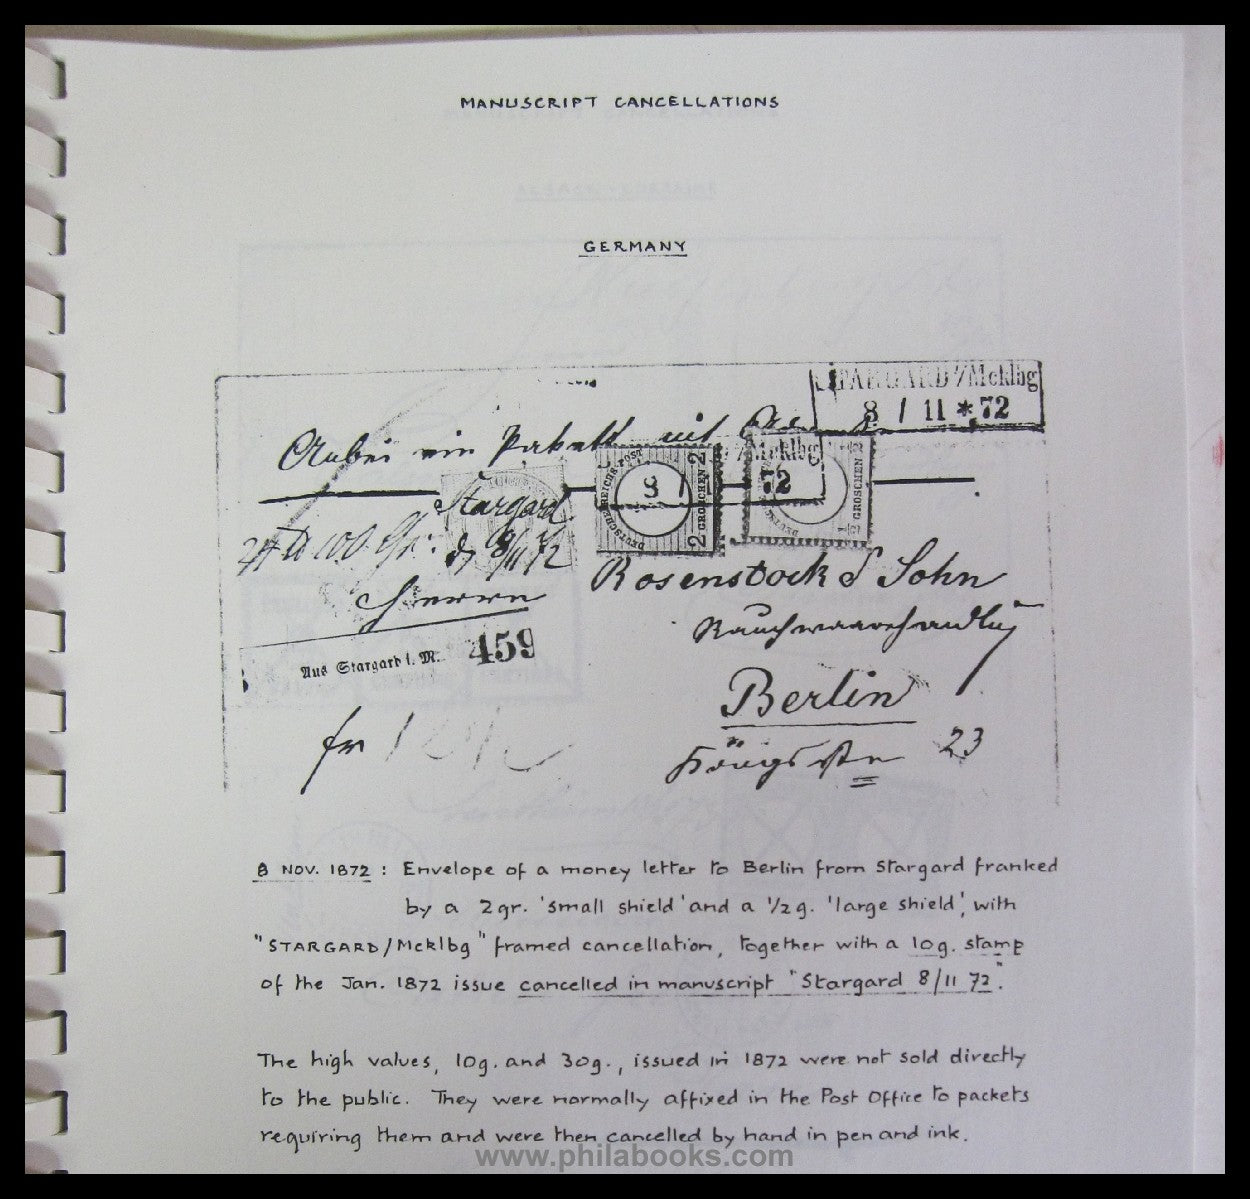 MANUSCRIPT CANCELLATIONS
GERMANY
STARGARD i/Mcklbg
8 / 11 * 72
Anbei ein Paket mit
i/Mcklbg
8 /
72
DEUTSCHE REICHS-POST
2 GROSCHEN 2
GROSCHEN
Stargard
8/11 72
Herrn
Rosenstock & Sohn
Rauchwaarenhandlung
Aus Stargard i. M.
459
Berlin
fr
Königsstr 23
8 NOV. 1872 : Envelope of a money letter to Berlin from Stargard franked
by a 2gr. 'small shield' and a 1/2g. 'large shield', with
"STARGARD/Mcklbg" framed cancellation, together with a 10g. stamp
of the Jan. 1872 issue cancelled in manuscript "Stargard 8/11 72".
The high values, 10g. and 30g., issued in 1872 were not sold directly
to the public. They were normally affixed in the Post Office to packets
requiring them and were then cancelled by hand in pen and ink.
www.philabooks.com